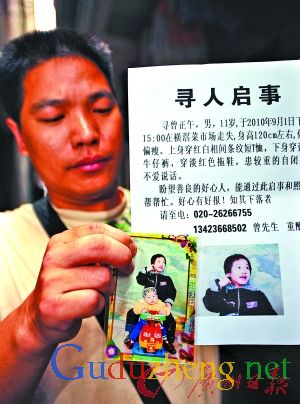 寻人启事
寻曾正午，男，11岁，于2010年9月1日下
15:00在横滘菜市场走失，身高120cm左右，
偏瘦。上身穿红白相间条纹短T恤，下身穿
牛仔裤，穿淡红色拖鞋，患较重的自闭
不爱说话。
盼望善良的好心人，能通过此启事和照
帮帮忙。好心有好报！知其下落者
请至电：020-26266755
13423668502 曾先生 重酬
Guduzheng.net
广州日报